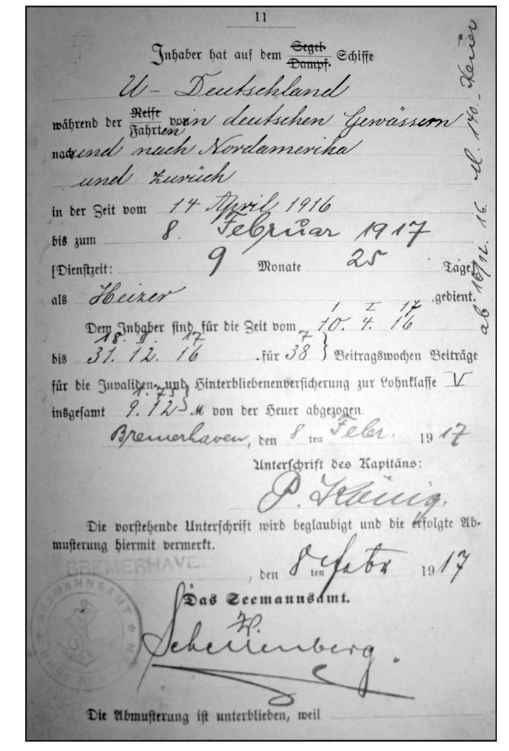 11
Inhaber hat auf dem Segel- Dampf- Schiffe
U - Deutschland
während der Reise Fahrten von in deutschen Gewässern
nach und nach Nordamerika
und zurück
in der Zeit vom 14 April 1916
bis zum 8. Februar 1917
Dienstzeit: 9 Monate 25 Tage
als Heizer gedient.
Dem Inhaber sind für die Zeit vom 10. 4. 16 1 I 17
bis 31. 12. 16 18. II. 17 für 38 7 Beitragswochen Beiträge
für die Invaliden- und Hinterbliebenenversicherung zur Lohnklasse V
insgesamt 9.12 1.75 M von der Heuer abgezogen
Bremerhaven, den 8 ten Febr. 1917
Unterschrift des Kapitäns:
P. König.
Die vorstehende Unterschrift wird beglaubigt und die erfolgte Ab-
musterung hiermit vermerkt.
BREMERHAVE
, den 8 ten Febr 1917
Das Seemannsamt.
Schellenberg.
Die Abmusterung ist unterblieben, weil
ab 16/12. 16 M. 140.- Heuer
SEEMANNSAMT